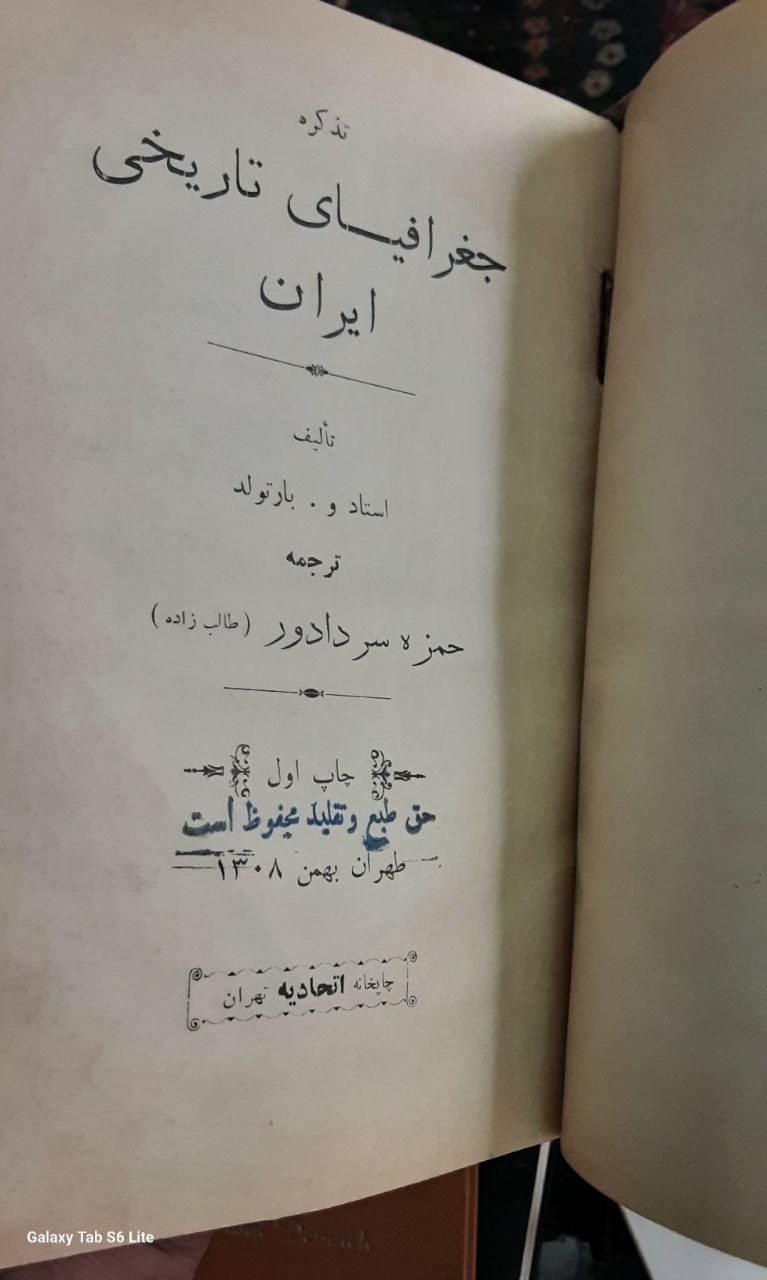 تذکره
جغرافیای تاریخی
ایران
تألیف
استاد و . بارتولد
ترجمه
حمزه سردادور (طالب زاده)
چاپ اول
حق طبع وتقلید محفوظ است
طهران بهمن ۱۳۰۸
چاپخانه اتحادیه تهران
Galaxy Tab S6 Lite